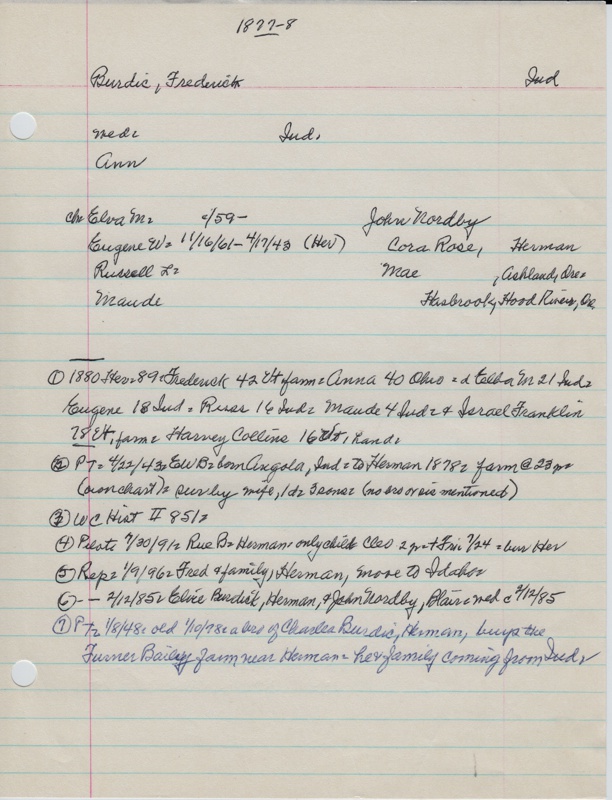 1877-8
Burdic, Frederick Ind
med: Ind.
Ann
ch= Elva M= c/59- John Nordby
Eugene W= 11/16/61-4/17/43 (Her) Cora Rose, Herman
Russell L= Mae , Ashland, Ore=
Maude Hasbrook, Hood River, Ore
① 1880 Her= 89= Frederick 42 Vt, farm= Anna 40 Ohio = d M 21 Ind=
Eugene 18 Ind= Russ 16 Ind= Maude 4 Ind= & Israel Franklin
78 Vt, farm= Harvey Collins 16 , hand=
② PT= 4/22/43= EWB= born Angola, Ind= to Herman 1878= farm @ 23 m=
(own chart)= sur by wife, 1d= 3 sons= (no bro or sis mentioned)
③ W C Hist II 851=
④ 7/30/91= Rue B= Herman= only child Cleo 2 y= + Fri 7/24 = bur Her
⑤ Rep= 1/9/96= Fred & family, Herman, move to Idaho=
⑥ -- 2/12/85= Elvie Burdick, Herman, & John Nordby, Blair= med c 2/12/85
⑦ PT= 1/8/48= old 1/10/78= a bro of Charles Burdic, Herman, buys the
Turner Bailey farm near Herman= he & family coming from Ind=